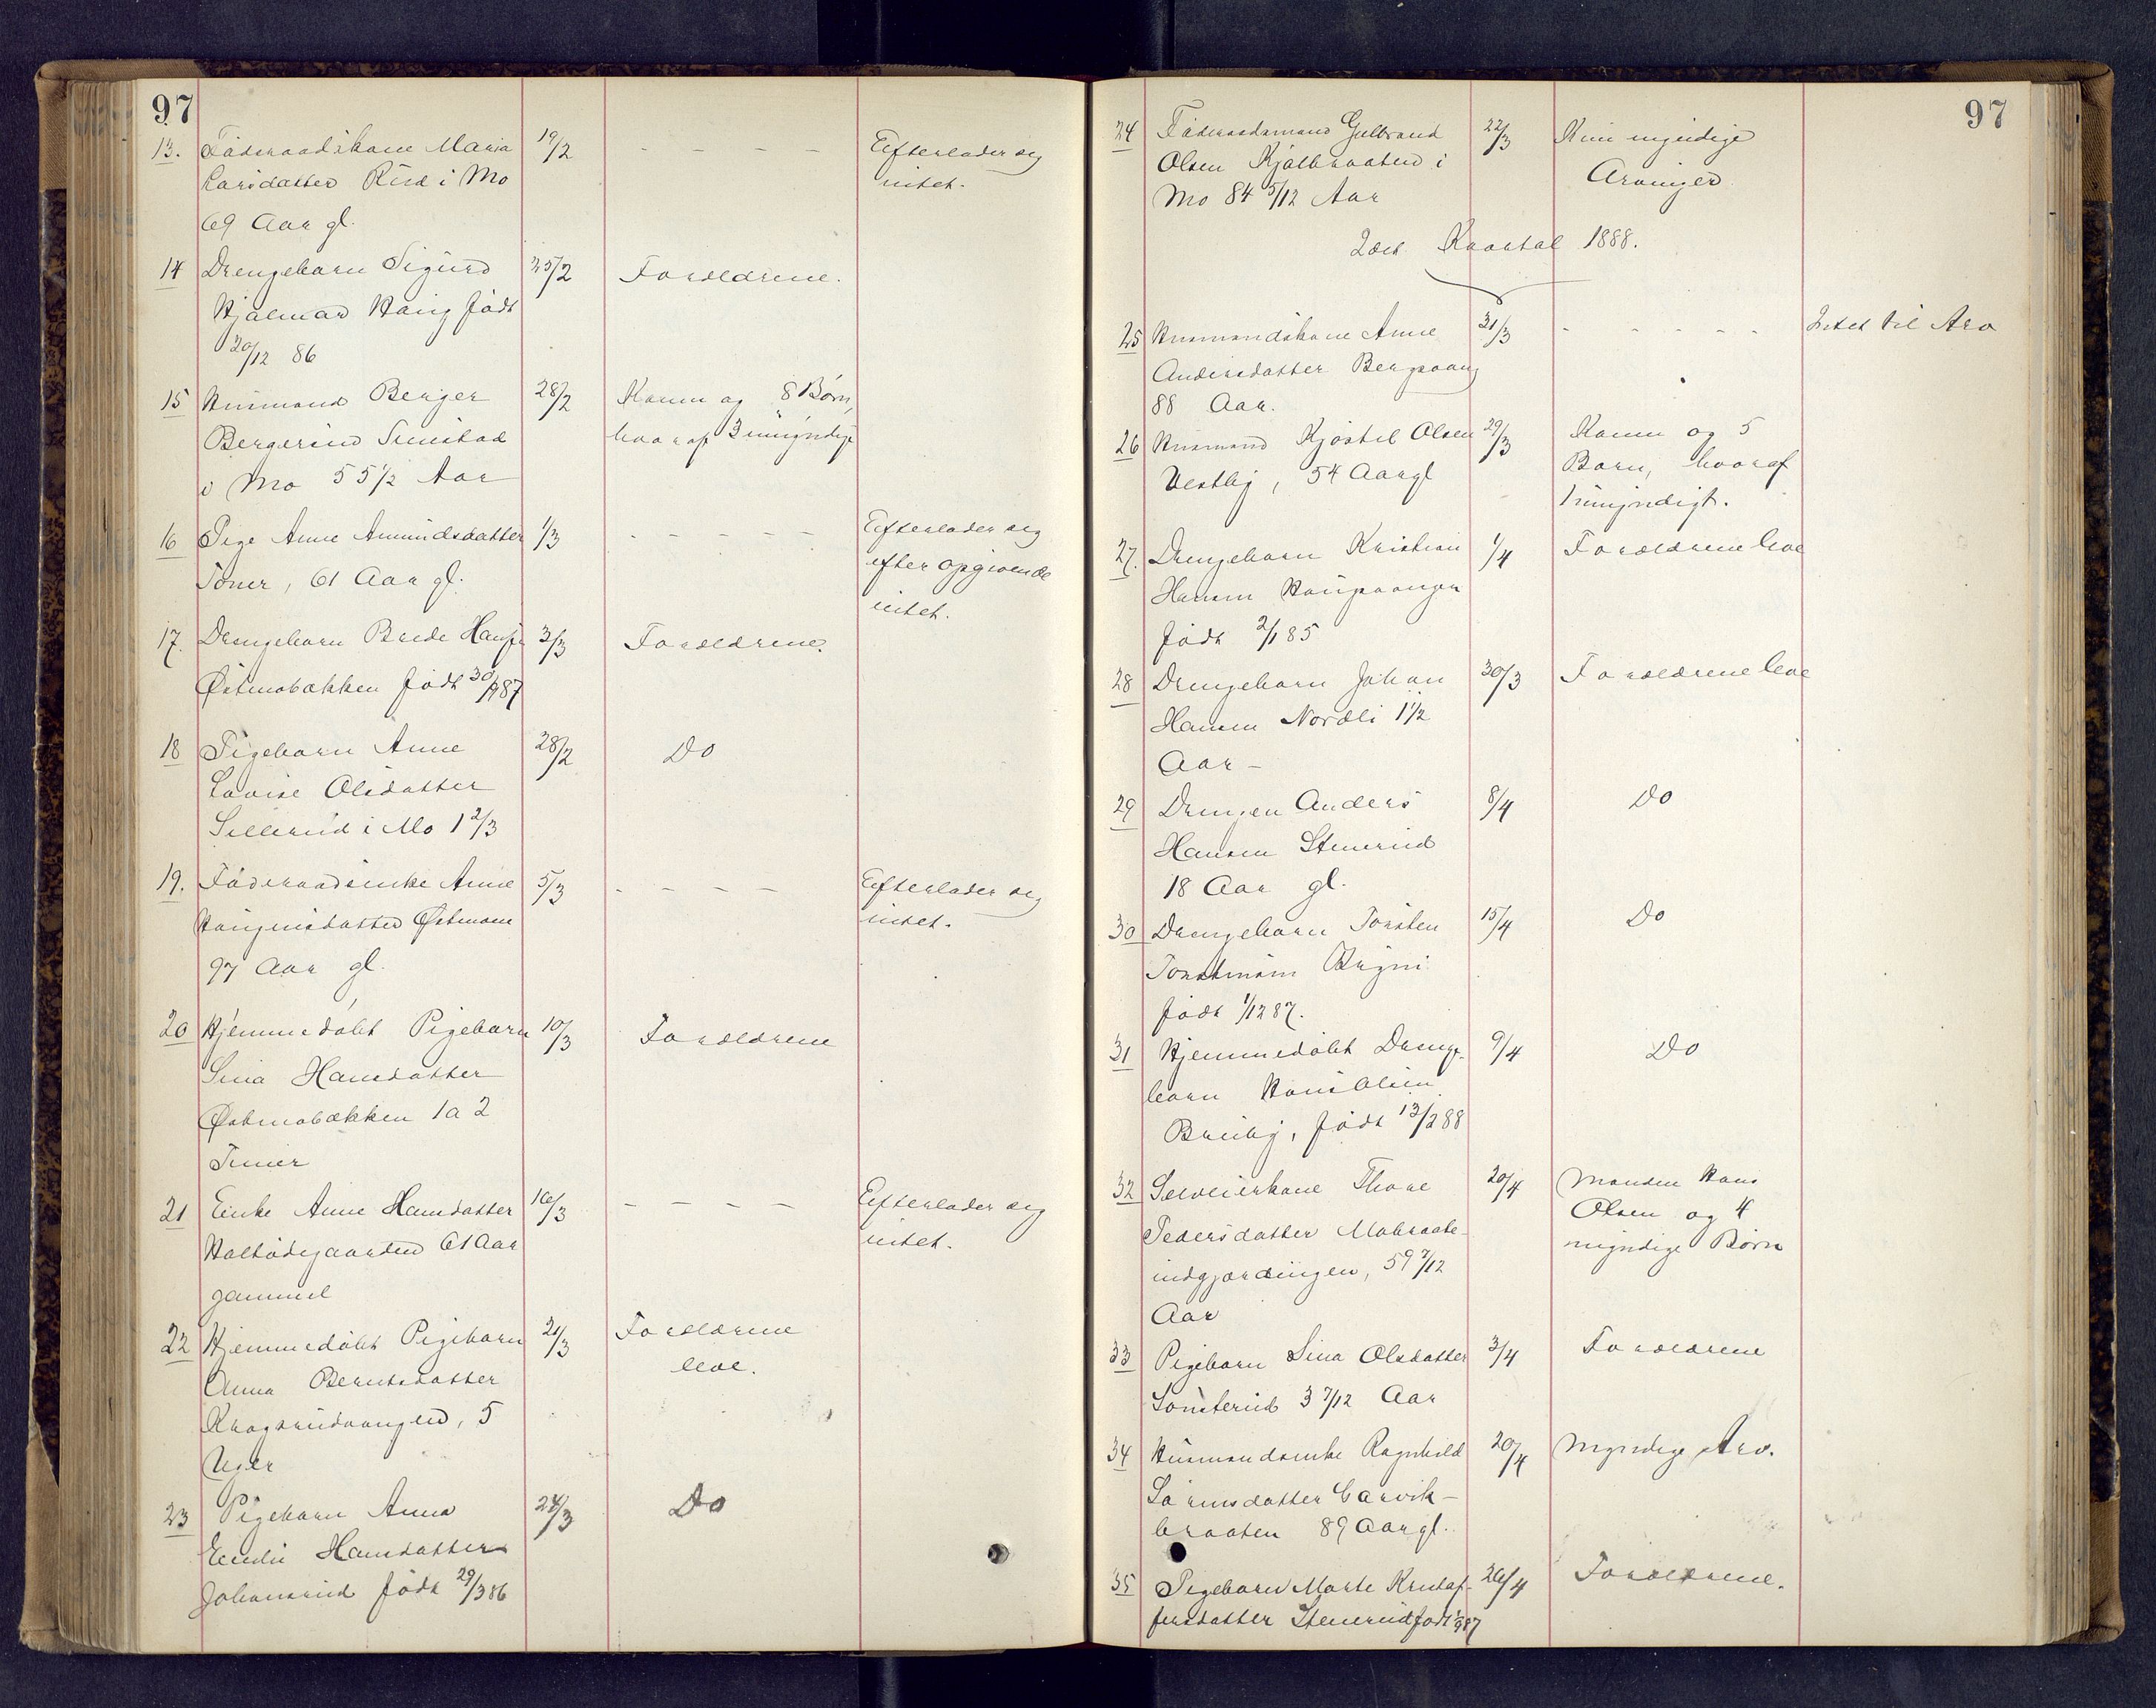 97
13. Føderaadskone Maria 19/2 - - - - Efterlader sig
Larsdatter Rud i Mo intet.
69 Aar gl.
14 Drengebarn Sigurd 25/2 Forældrene.
Hjalmar Haug født
20/12 86
15 Husmand Berger 28/2 Konen og 8 Børn,
Bergersen Simstad hvoraf 3 umyndige
i Mo 55 1/2 Aar
16 Pige Anne Amundsdatter 1/3 - - - - - Efterlader sig
Toner, 61 Aar gl. efter opgivende
intet.
17. Drengebarn Brede Hansen 3/3 Forældrene.
Østmobækken født 30/1187
18 Pigebarn Anne 28/2 Do
Lovise Olsdatter
Sillerud i Mo 1 2/3
19. Føderaadsenke Anne 5/3 - - - - Efterlader sig
Haugensdatter Østmoen intet.
97 Aar gl.
20 Hjemmedøbt Pigebarn 10/3 Forældrene
Sina Hansdatter
Østmobækken 1 a 2
Timer
21 Enke Anne Hansdatter 16/3 - - - - Efterlader sig
Holtødegaarden 61 Aar intet.
gammel
22 Hjemmedøbt Pigebarn 21/3 Forældrene
Anna Berntsdatter leve.
Kragsrudvangen, 5
Uger
23 Pigebarn Anna 24/3 Do
Emilie Hansdatter
Johansrud født 29/386
97
24 Føderaadsmand Gulbrand 22/3 Kun myndige
Olsen Kjølbraaten i Arvinger
Mo 84 5/12 Aar
2det Kvartal 1888.
25 Husmandskone Anne 31/3 - - - - - Intet til Arv
Andersdatter Bergvang
88 Aar.
26 Husmand Kjøstel Olsen 29/3 Konen og 5
Vestby, 54 Aargl Børn, hvoraf
1 umyndigt.
27. Drengebarn Kristian 1/4 Forældrene leve
Hansen Haugvangen
født 2/185
28 Drengebarn Johan 30/3 Forældrene leve
Hansen Nordli 1 1/2
Aar -
29 Drengen Anders 8/4 Do
Hansen Stenerud
18 Aar gl.
30 Drengebarn Torsten 15/4 Do
Torstensen Brgni
født 1/1287.
31 Hjemmedøbt Drenge- 9/4 Do
barn Hans Olsen
Breiby, født 13/288
32 Selveierkone Thore 20/4 Manden Hans
Pedersdatter Mobraate- Olsen og 4
indgjærdingen, 59 7/12 myndige Børn
Aar
33 Pigebarn Sina Olsdatter 3/4 Forældrene
Sønsterud 3 7/12 Aar
34 Husmandsenke Ragnhild 20/4 Myndige Arv.
Sørensdatter Garvik-
braaten 89 Aargl.
35 Pigebarn Marte Kristof- 26/4 Forældrene.
fersdatter Stenerud født 987